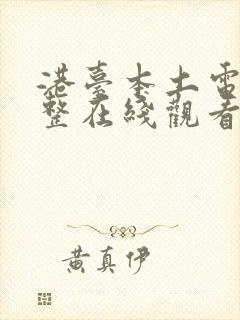 港臺本土電
整在綫觀看
黄真伊